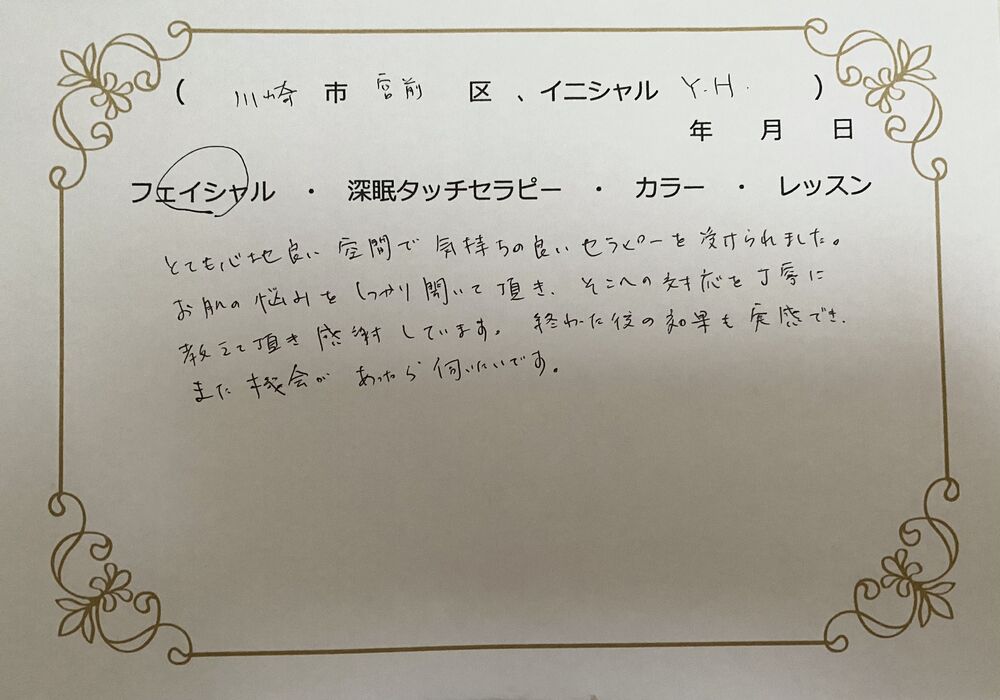 ( 川崎 市 宮前 区 、イニシャル Y.H. )
年 月 日
フェイシャル ・ 深眠タッチセラピー ・ カラー ・ レッスン
とても心地良い空間で気持ちの良いセラピーを受けられました。
お肌の悩みをしっかり聞いて頂き、そこへの対応を丁寧に
教えて頂き感謝しています。終わった後の効果も実感でき、
また機会があったら伺いたいです。